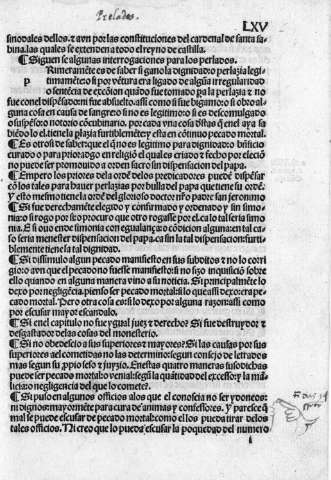 Prelados.
LXV
sinodales dellos. z avn por las constituciones del cardenal de santa sa-
bina. las quales se extenden a todo el reyno de castilla.
¶ Siguen se algunas interrogaciones para los perlados.
p Rimeramẽte es de saber si gano la dignidad o perlazia legi-
timamẽte o si por vẽtura era ligado de algũa irregularidad
o sentẽcia de excõion quãdo fue tomado pa la perlazia z no
fue con el dispẽsado: ni fue absuelto. assi como si fue bigamo: o si obro al-
guna cosa en causa de sangre o si no es legitimo: o si es descomulgado
o suspẽso z notorio cõcubinario. por cada vna cosa dstas q̃ en el aya sa-
biẽdo lo el. tiene la plazia furtiblemẽte z esta en cõtinuo pecado mortal.
¶ Es otrosi de saber: que el q̃ no es legitimo para dignidad: o bñficio
curado o para prioradgo en religiõ el qual es criado z fecho por elecio
no puede ser promouido a orden sacro sin dispensacion del papa.
¶ Empero los priores de la ordẽ delos predicadores puede dispẽsar
cõ los tales para hauer perlazias por bulla del papa que tiene su ordẽ:
Y esto mesmo tiene la ordẽ del glorioso doctor nr̃o padre san jeronimo
¶ Si fue derechamẽte elegido y confirmado y ordenado y sin simo-
nia: o si rogo por si: o procuro que otro rogasse por el. ca lo tal seria simo
nia. E si ouo ende simonia con egualança: o cõdicion alguna: en tal ca-
so seria menester dispensacion del papa. ca sin la tal dispensacion: furti-
blemente tiene la tal dignidad.
¶ Si dissimulo algun pecado manifiesto en sus subditos z no lo corri
gio: o avn que el pecado no fuesse manifiesto: si no figo inquisiciõ sobre
ello quando en alguna manera vino a su noticia. Si principalmẽte lo
dexo por negligẽcia. piẽso ser pecado mortal: si lo que assi dexo: era pe-
cado mortal. Pero otra cosa es: si lo dexo por alguna razon: assi como
por escusar mayor escandalo.
¶ Si en el capitulo no fue ygual juez z derecho? Si fue destruydor z
desgastador de las cosas del monesterio.
¶ Si no obedescio a sus superiores z mayores? Si las causas por sus
superiores a el cometidas no las determino: segun consejo de letrados
mas segun su ppio seso z juyzio. En estas quatro maneras susodichas
puede ser pecado mortal: o venial: segũ la quãtidad del excesso: y la ma-
licia: o negligencia del que lo comete?
¶ Si puso en algunos officios alos que el conoscia no ser ydoneos:
ni dignos: mayormẽte para cura de animas y confessores. Y parese q̃
mal se puede escusar de pecado mortal: como el los pueda tirar delos
tales officios. Ni creo que lo pueda escusar la poquedad del numero